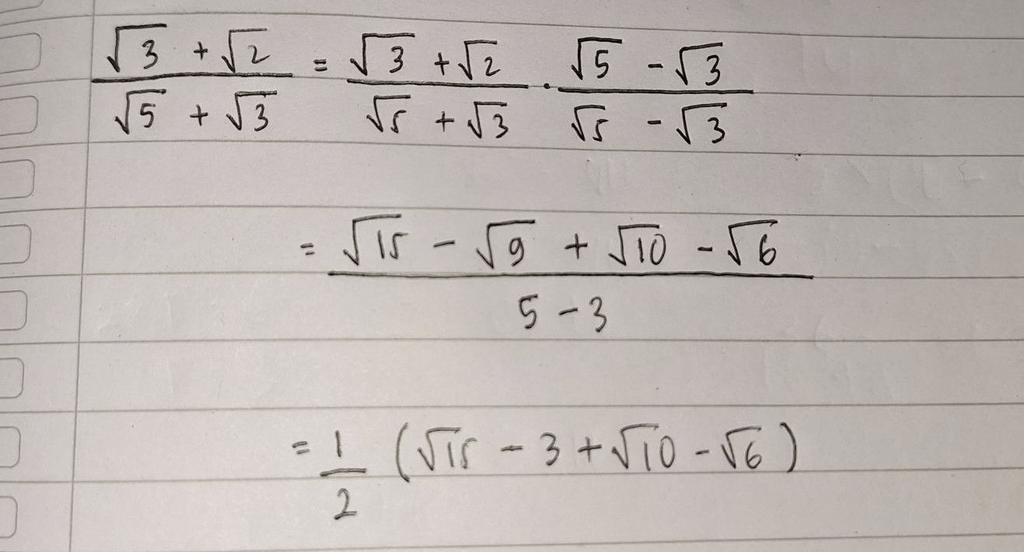 (√3 + √2)/(√5 + √3) = (√3 + √2)/(√5 + √3) · (√5 - √3)/(√5 - √3)
= (√15 - √9 + √10 - √6)/(5 - 3)
= 1/2 (√15 - 3 + √10 - √6)